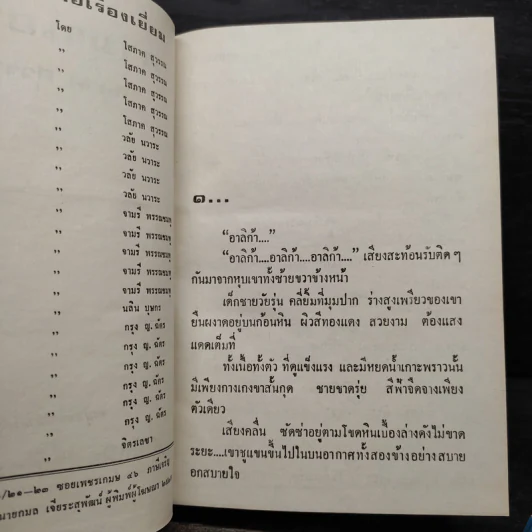 เรื่องเยี่ยม
โดย โสภาค สุวรรณ
,, โสภาค สุวรรณ
,, โสภาค สุวรรณ
,, โสภาค สุวรรณ
,, โสภาค สุวรรณ
,, วลัย นวาระ
,, วลัย นวาระ
,, วลัย นวาระ
,, วลัย นวาระ
,, จามรี พรรณชมพู
,, จามรี พรรณชมพู
,, จามรี พรรณชมพู
,, จามรี พรรณชมพู
,, จามรี พรรณชมพู
,, นลิน บุษกร
,, กรุง ญ. ฉัตร
,, กรุง ญ. ฉัตร
,, กรุง ญ. ฉัตร
,, กรุง ญ. ฉัตร
,, กรุง ญ. ฉัตร
,, กรุง ญ. ฉัตร
,, จิตรเลขา
/๒๑—๒๓ ซอยเพชรเกษม ๔๖ ภาษีเจริญ
นายกมล เจียระสุพัฒน์ ผู้พิมพ์ผู้โฆษณา
๑...
“อาลิก้า....”
“อาลิก้า....อาลิก้า....อาลิก้า....” เสียงสะท้อนรับติด ๆ
กันมาจากหุบเขาทั้งซ้ายขวาข้างหน้า
เด็กชายวัยรุ่น คลี่ยิ้มที่มุมปาก ร่างสูงเพรียวของเขา
ยืนผงาดอยู่บนก้อนหิน ผิวสีทองแดง สวยงาม ต้องแสง
แดดเต็มที่
ทั้งเนื้อทั้งตัว ที่ดูแข็งแรง และมีหยดน้ำเกาะพราวนั้น
มีเพียงกางเกงขาสั้นกุด ชายขาดรุ่ย สีฟ้าจืดจางเพียง
ตัวเดียว
เสียงคลื่น ซัดซ่าอยู่ตามโขดหินเบื้องล่างดังไม่ขาด
ระยะ....เขาชูแขนขึ้นไปในบนอากาศทั้งสองข้างอย่างสบาย
อกสบายใจ